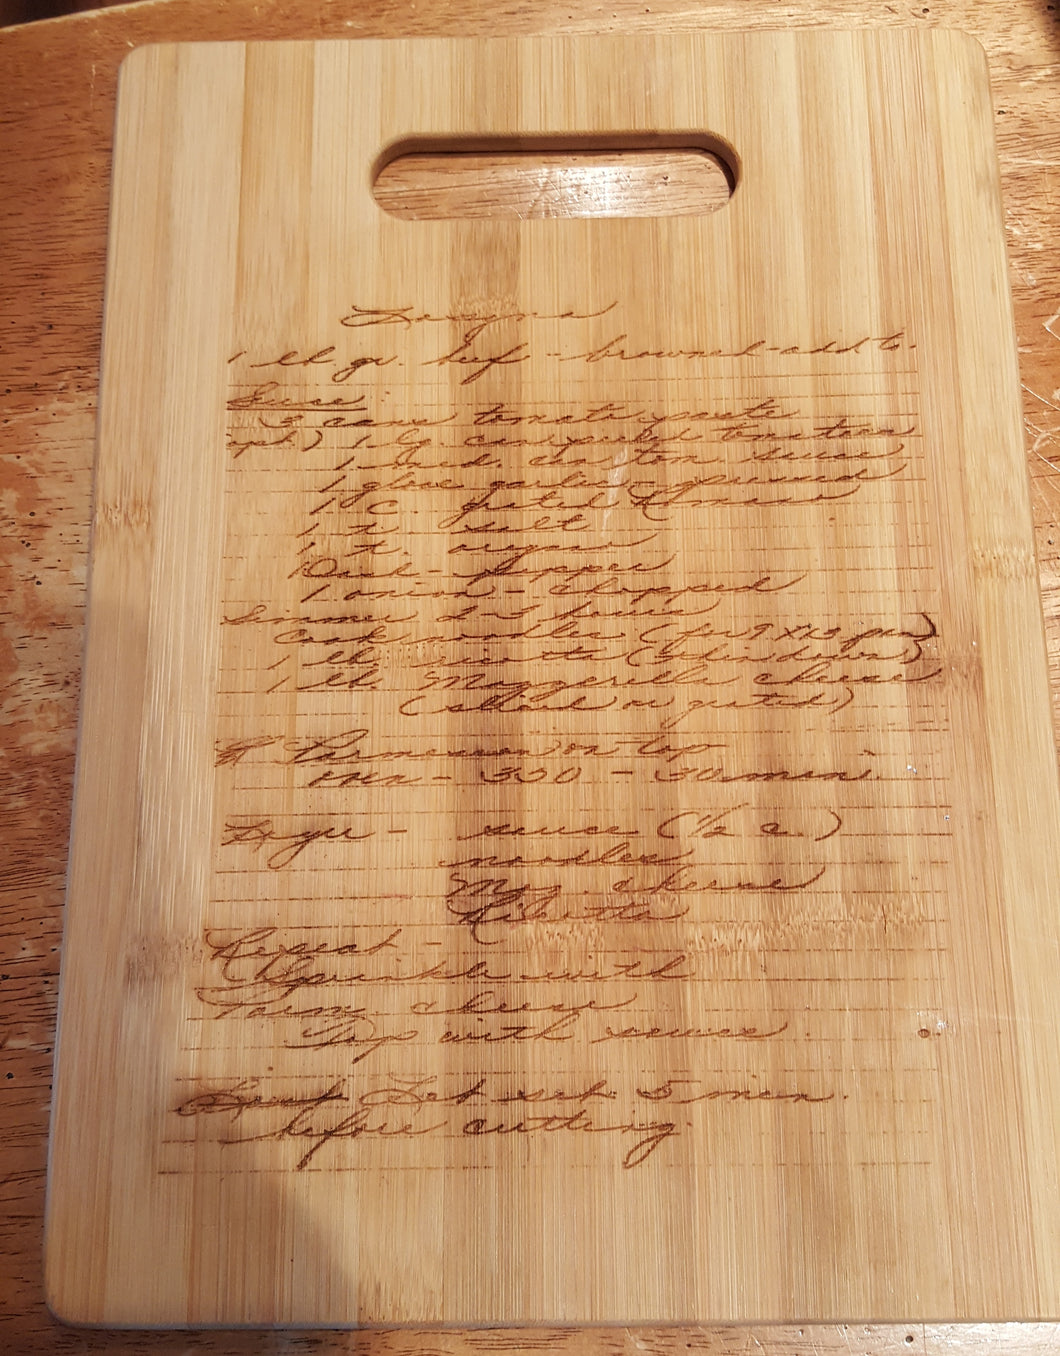 Lasagna
1 lb. gr. beef - browned - add to.
Sauce:
3 cans tomato paste
1 lg. can peeled tomatoes
1 med. can tom. sauce
1 glove garlic - pressed
1 C. grated Romano
1 t. salt
1 t. oregano
Dash - Pepper
1 onion - chopped
Simmer 2 hours
Cook noodles (for 9 X 13 pan)
1 lb. ricotta
1 lb. Mozzerella cheese
(sliced or grated)
Parmesan on top
oven - 350 - 30 mins.
Layer - sauce (1/2 c.)
noodles
Moz. cheese
Ricotta
Repeat -
Sprinkle with
Parm cheese
Top with sauce.
Let set 5 min.
before cutting.